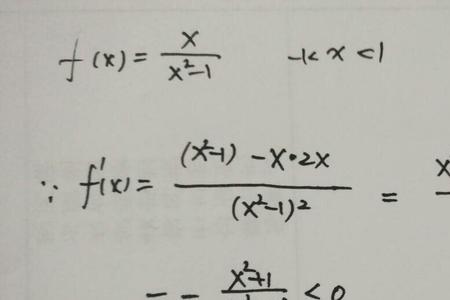 f(x) = x / (x²-1)   -1< x <1
∵ f'(x) = ((x²-1) - x·2x) / (x²-1)² =
= - (x²+1) / < 0